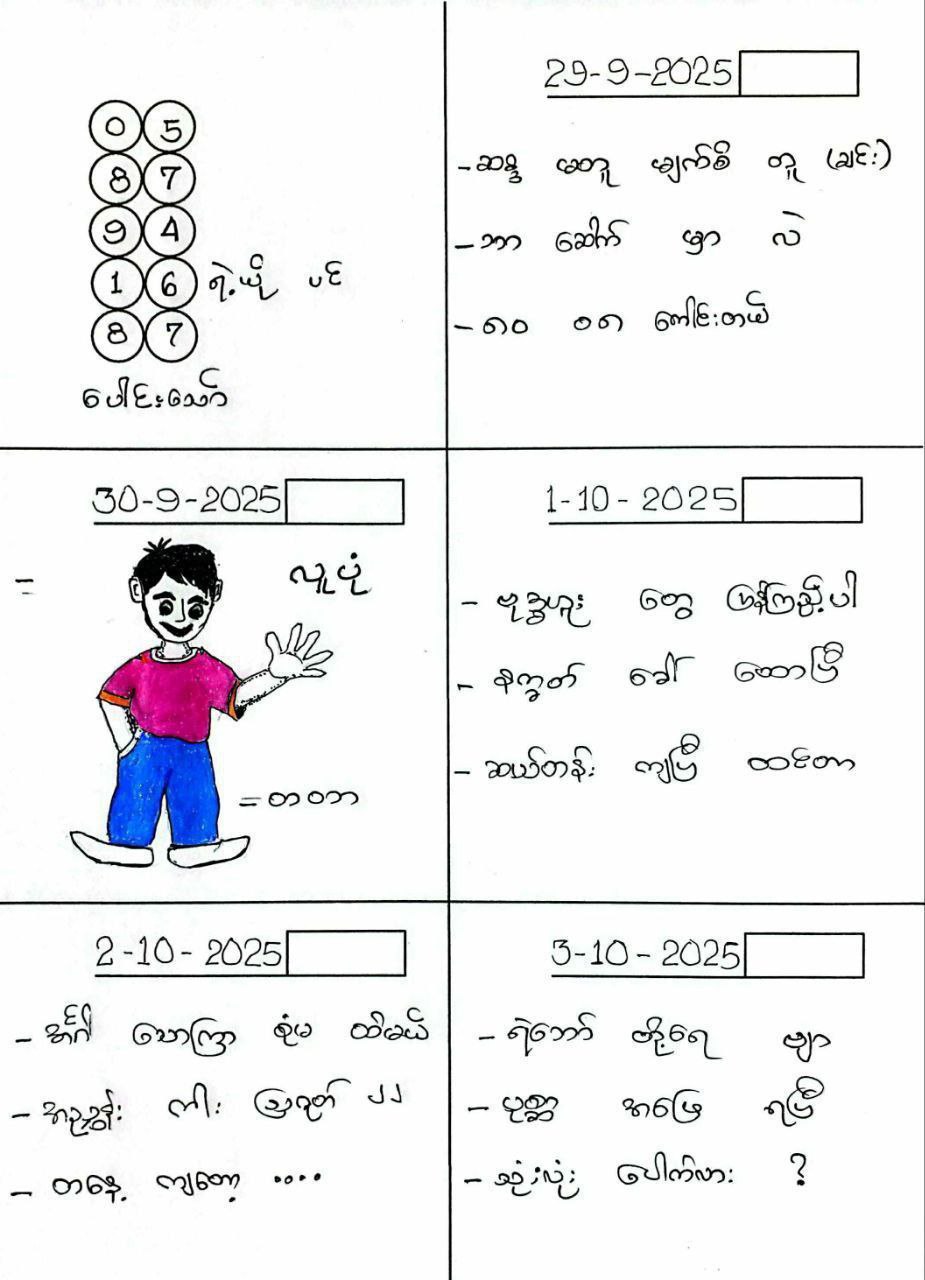 0 5
8 7
9 4
1 6 ရဲ့ယို ပင်
8 7
ပေါင်းသော်
29-9-2025
- ဆန္ဒ မတူ မျက်စိ တူ (ချင်း)
- ဘာ ဆောက် မှာ လဲ
- ၈၀ ၀၈ ကောင်းတယ်
30-9-2025
= လူပုံ
= တဝဘ
1-10-2025
- ဗုဒ္ဓဟူး တွေ ပြန်ကြည့်ပါ
- နက္ခတ် ခေါ် ထောပြီ
- ဆယ်တန်း ကျပြီ ထင်တာ
2-10-2025
- အင်္ဂါ သောကြာ စုံမ ထိမယ်
- အညွှန်း ကါး ဩဂုတ် ၂၂
- တနေ့ ကျတော့ ....
3-10-2025
- ရဲဘော် တို့ရေ ဗျာ
- ပုစ္ဆာ အဖြေ ရပြီ
- သုံးလုံး ပေါက်လား ?